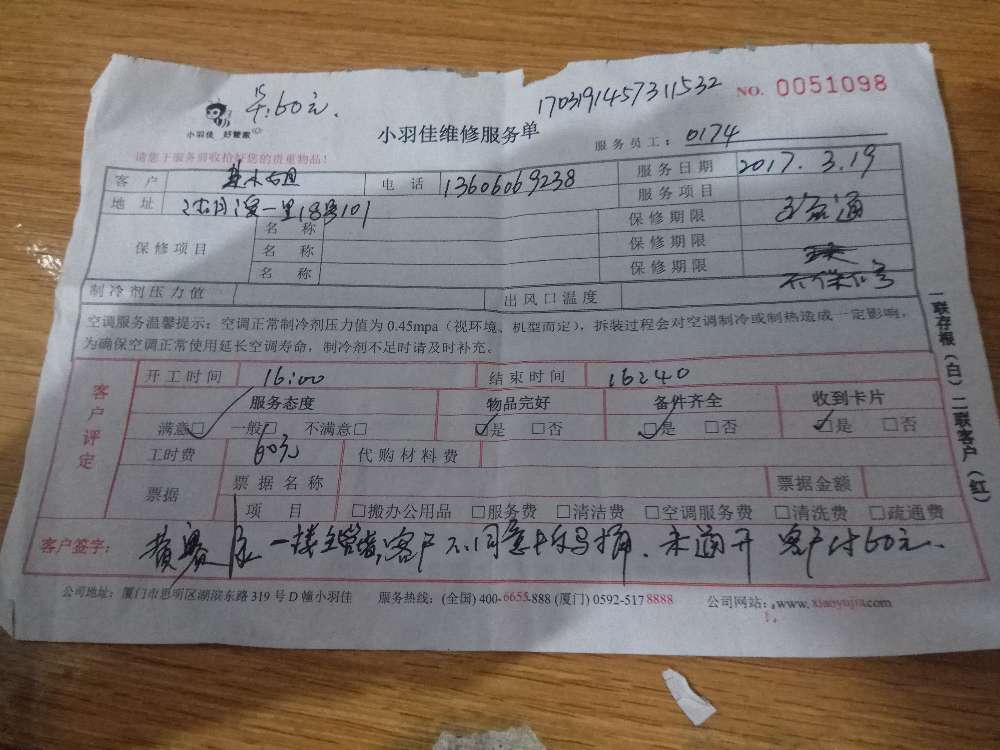 60元.
1703191457311532
NO. 0051098
小羽佳 好管家
小羽佳维修服务单
服务员工： 0174
请您于服务前收拾好您的贵重物品！
客 户 电 话 13606069238 服务日期 2017.3.19
地 址 一里18号101 服务项目
保修项目 名 称 保修期限 通
名 称 保修期限
名 称 保修期限
制冷剂压力值 出风口温度
空调服务温馨提示：空调正常制冷剂压力值为 0.45mpa（视环境、机型而定），拆装过程会对空调制冷或制热造成一定影响，
为确保空调正常使用延长空调寿命，制冷剂不足时请及时补充。
客户评定
开工时间 16:00 结束时间 16:40
服务态度 物品完好 备件齐全 收到卡片
满意□ 一般□ 不满意□ □是 □否 □是 □否 □是 □否
工时费 60元 代购材料费
票据 票据名称 票据金额
项 目 □搬办公用品 □服务费 □清洁费 □空调服务费 □清洗费 □疏通费
客户签字： 一楼主管堵,客户不同意拆马桶.未通开 客户付60元.
公司地址：厦门市思明区湖滨东路 319 号 D 幢小羽佳 服务热线：(全国) 400-6655-888 (厦门) 0592-517 8888 公司网站：www. xiaoyujia.com
一联存根（白）二联客户（红）